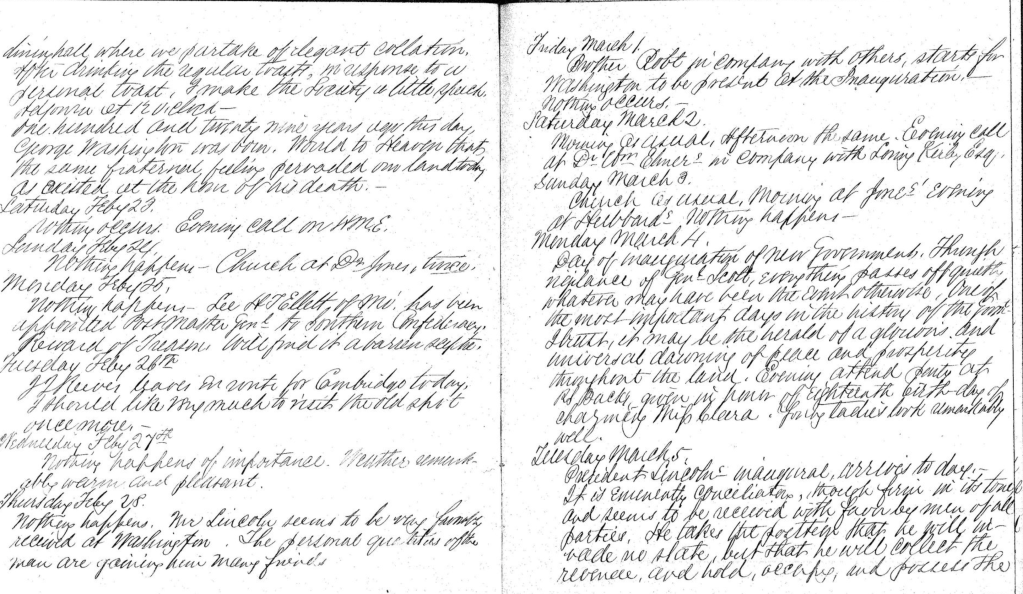 dining hall, where we partake of elegant collation.
After drinking the regular toasts, in response to a
personal toast, I make the Society a little speech
Adjourn at 12 o'clock —
One hundred and twenty nine years ago this day
George Washington was born. Would to Heaven that
the same fraternal feeling pervaded our land today
as existed at the hour of his death. —
Saturday Feby 23.
Nothing occurs. Evening call on HME.
Sunday Feby 24.
Nothing happens — Church at Dr Jones, twice.
Monday Feby 25,
Nothing happens — See H T Ellett, of Mi. has been
appointed Post Master Genl to Southern Confederacy.
Reward of Treason. Will find it a barren scepter
Tuesday Feby 26th
leaves en route for Cambridge today,
I should like very much to visit the old spot
once more. —
Wednesday Feby 27th
Nothing happens of importance. Weather remark-
ably warm and pleasant.
Thursday Feby 28.
Nothing happens. Mr Lincoln seems to be very
received at Washington. The personal qualities of the
man are gaining him many friends
Friday March 1.
Brother Robt in company with others, starts for
Washington to be present at the Inauguration. —
Nothing occurs. —
Saturday March 2.
Morning as usual, Afternoon the same. Evening call
at Dr Wm Elmers in company with Esq.
Sunday March 3.
Church as usual, Morning at Jones' Evening
at Hubbards Nothing happens —
Monday March 4.
Day of inauguration of new Government. Through
vigilance of Genl Scott, everything passes off quietly
whatever may have been the event otherwise. One of
the most important days in the history of the Govt
I trust, it may be the herald of a glorious and
universal dawning of peace and prosperity
throughout the land. Evening attend party at
given in honor of Eighteenth birth-day of
charming Miss Clara. Young ladies look remarkably
well.
Tuesday March 5.
President Lincolns inaugural, arrives to day. —
It is eminently conciliatory, though firm in its tone
and seems to be received with favor by men of all
parties. He takes the position that he will in-
vade no state, but that he will collect the
revenue, and hold, occupy, and possess the